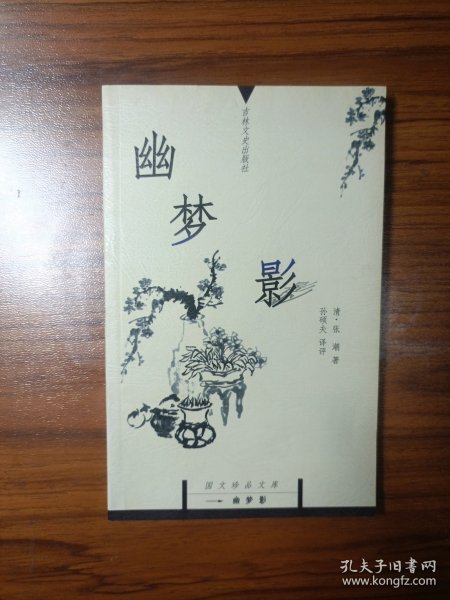 吉林文史出版社
幽梦影
清·张潮 著
孙硕夫 译评
国文珍品文库
幽梦影
孔夫子旧书网
www.kongfz.com